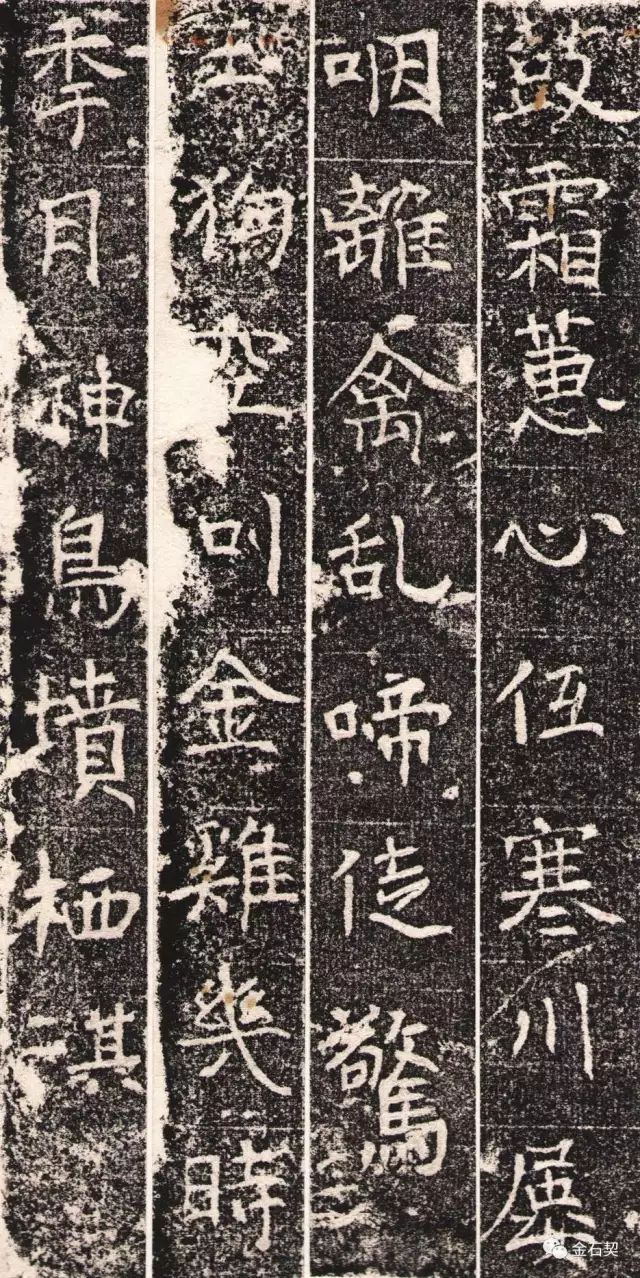 鼓霜蕙心伍寒川展
咽離禽乱啼徒驚
土狗空叫金雞幾時
季月神鳥墳栖琪
金石契